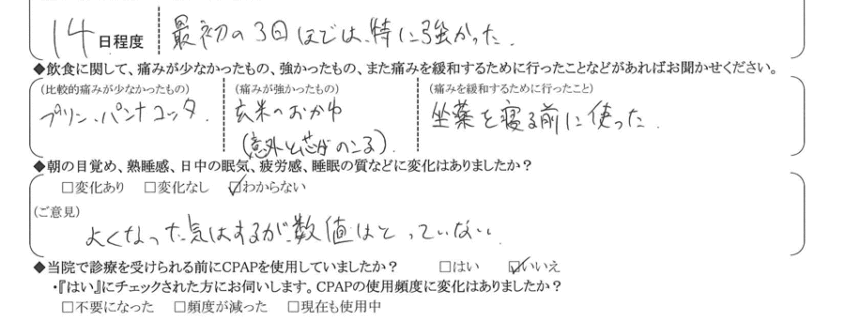 14日程度 最初の3日ほどは、特に強かった.
◆飲食に関して、痛みが少なかったもの、強かったもの、また痛みを緩和するために行ったことなどがあればお聞かせください。
(比較的痛みが少なかったもの) (痛みが強かったもの) (痛みを緩和するために行ったこと)
プリン、パンナコッタ. 玄米のおかゆ 坐薬を寝る前に使った.
(意外と芯がのこる).
◆朝の目覚め、熟睡感、日中の眠気、疲労感、睡眠の質などに変化はありましたか?
□変化あり □変化なし ☑わからない
(ご意見)
よくなった気はするが、数値はとっていない
◆当院で診療を受けられる前にCPAPを使用していましたか? □はい ☑いいえ
・『はい』にチェックされた方にお伺いします。CPAPの使用頻度に変化はありましたか?
□不要になった □頻度が減った □現在も使用中